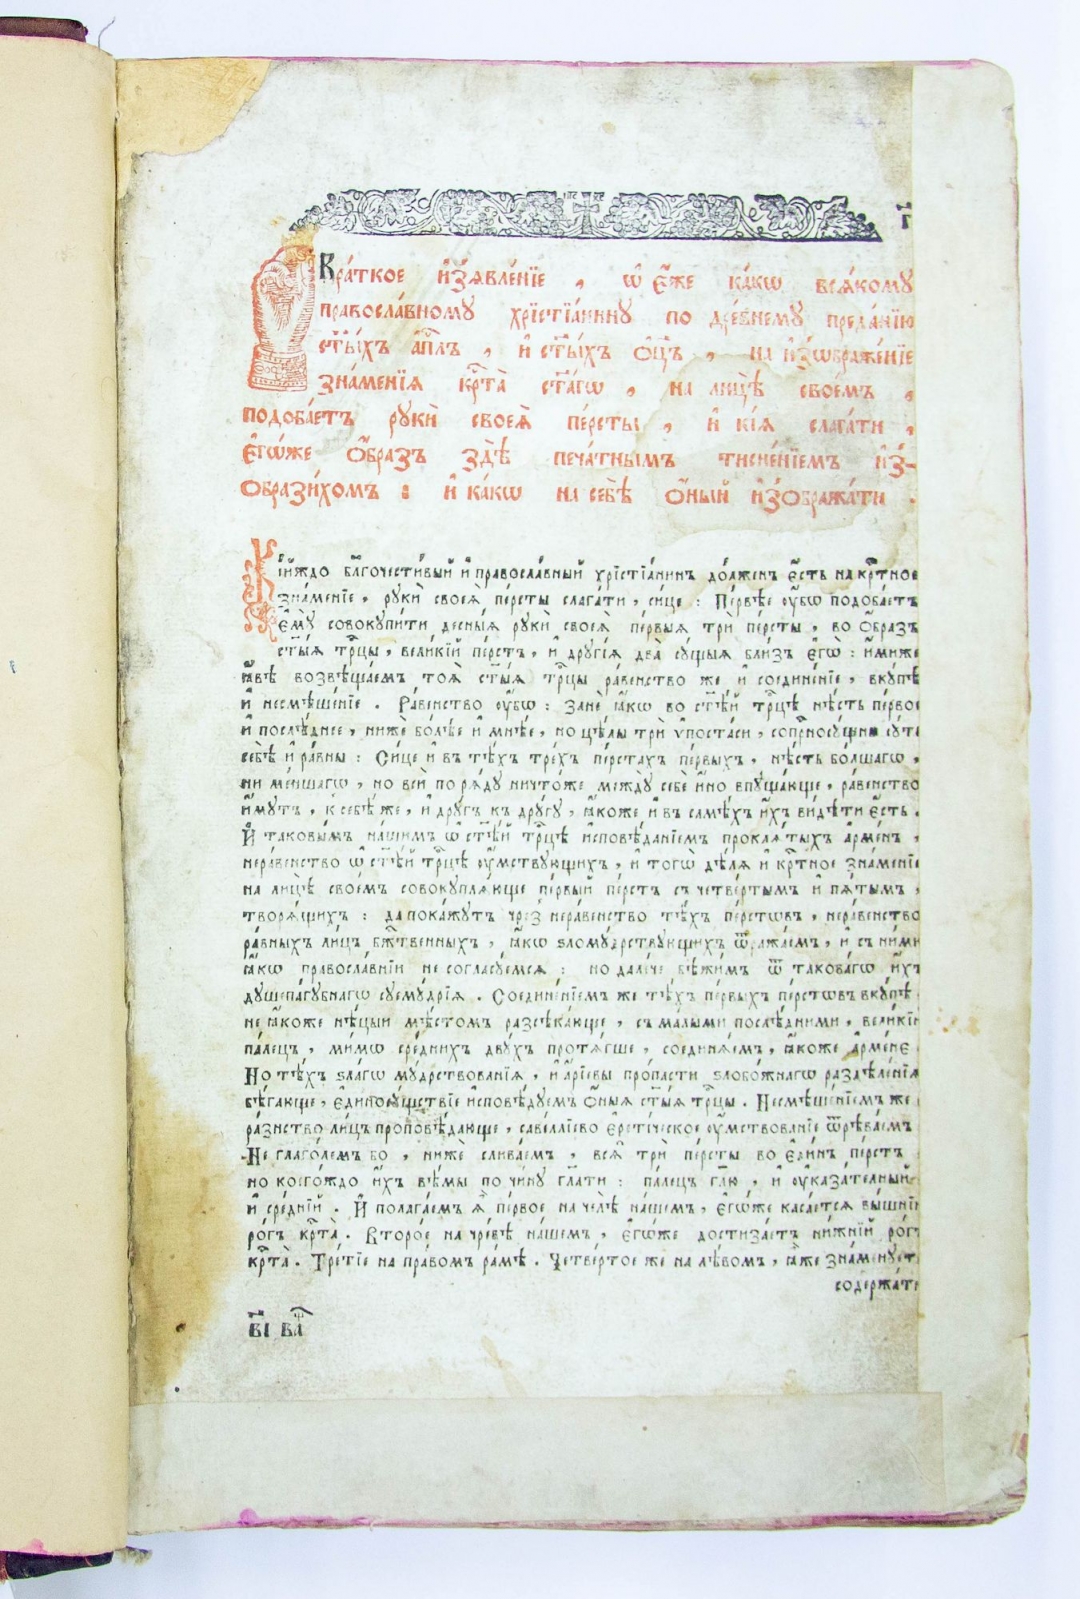 г҃
Кра́ткое и҆з̾явле́нїе , ѡ҆ є҆́же ка́кѡ всѧ́кому
правосла́вному хрїстїа́нину по дре́внему преда́нїю
ст҃ы́хъ а҆п҃лъ , и҆ ст҃ы́хъ ѻ҆ц҃ъ , на и҆з̾ѡбраже́нїе
зна́менїѧ кр҃та̀ ст҃а́гѡ , на лицѣ̀ свое́мъ ,
подоба́етъ рукѝ своеѧ̀ пе́рсты , и҆ кі́ѧ слага́ти ,
є҆гѡ́же ѻ҆́бразъ здѣ̀ печа́тнымъ тисне́нїемъ и҆з̾-
ѡбрази́хомъ : и҆ ка́кѡ на себѣ̀ ѻ҆́ный и҆з̾ѡбража́ти .
Кі́йждо бл҃гочести́вый и҆ правосла́вный хрїстїа́нинъ до́лженъ є҆́сть на кр҃тное
зна́менїе , рукѝ своеѧ̀ пе́рсты слага́ти , си́це : Пе́рвѣе ᲂу҆́бѡ подоба́етъ
є҆мꙋ̀ совокупи́ти десны́ѧ рукѝ своеѧ̀ пе́рвыѧ трѝ пе́рсты , во ѻ҆́бразъ
ст҃ы́ѧ тр҃цы , вели́кїй пе́рстъ , и҆ другі́ѧ два̀ су́щыѧ бли́з̾ є҆гѡ̀ : и҆́миже
ꙗ҆́вѣ возвѣща́емъ тоѧ̀ ст҃ы́ѧ тр҃цы ра́венство же и҆ соедине́нїе , вку́пѣ
и҆ несмѣше́нїе . Ра́венство ᲂу҆́бѡ : Занѐ ꙗ҆́кѡ во ст҃ѣ́й тр҃цѣ нѣ́сть пе́рвое
и҆ послѣ́днее , нижѐ бо́лѣе и҆ мнѣ́е , но цѣ́лы трѝ ѵ҆поста́си , соприсосу́щни су́ть
себѣ̀ и҆ ра́вны : Си́це и҆ в̾ тѣ́хъ тре́хъ пе́рстахъ пе́рвыхъ , нѣ́сть бо́лшагѡ ,
ни ме́ншагѡ , но всѝ по рѧ́ду ничто́же между̀ себѐ и҆́но впуща́юще , ра́венство
и҆́мутъ , к̾ себѣ́ же , и҆ дру́гъ къ дру́гу , ꙗ҆́коже и҆ в̾ самѣ́хъ и҆́хъ ви́дѣти є҆́сть .
И҆ таковы́мъ на́шимъ ѡ҆ ст҃ѣ́й тр҃цѣ и҆сповѣ́данїемъ проклѧ́тыхъ а҆рме́нъ ,
нера́венство ѡ҆ ст҃ѣ́й тр҃цѣ ᲂу҆́мствующихъ , и҆ тогѡ̀ дѣ́лѧ и҆ кр҃тное зна́менїе
на лицѣ̀ свое́мъ совокуплѧ́юще пе́рвый пе́рстъ съ четве́ртымъ и҆ пѧ́тымъ ,
творѧ́щихъ : да пока́жутъ чрез̾ нера́венство тѣ́хъ пе́рстѡвъ , нера́венство
ра́вныхъ ли́цъ бж҃твенныхъ , ꙗ҆́кѡ ѕломꙋ́дрствующихъ ѿража́емъ , и҆ с̾ ни́ми
ꙗ҆́кѡ правосла́внїи не согласу́емсѧ : но дале́че бѣжи́мъ ѿ такова́гѡ и҆́хъ
душепа́губнагѡ суемꙋ́дрїѧ . Соедине́нїемъ же тѣ́хъ пе́рвыхъ пе́рстѡвъ вку́пѣ
не ꙗ҆́коже нѣ́цыи мѣ́стомъ разсѣка́юще , съ ма́лыми послѣ́дними , вели́кїй
па́лецъ , ми́мѡ сре́днихъ двꙋ́хъ протѧ́гше , соединѧ́емъ , ꙗ҆́коже а҆рме́не .
Но тѣ́хъ ѕла́гѡ мꙋ́дрствованїѧ , и҆ а҆рі́евы про́пасти ѕлобо́жнагѡ раздѣле́нїѧ
бѣ́гающе , є҆диносу́щствїе и҆сповѣ́дуемъ ѻ҆́ныѧ ст҃ы́ѧ тр҃цы . Несмѣше́нїемъ же
ра́знство ли́цъ проповѣ́дающе , саве́ллїево є҆рети́ческое ᲂу҆́мствованїе ѿрѣва́емъ
Не глаго́лемъ бо , нижѐ слива́емъ , всѧ̀ трѝ пе́рсты во є҆ди́нъ пе́рстъ
но коего́ждо и҆́хъ вѣ́мы по чи́ну гл҃ати : па́лецъ гл҃ю , и҆ ᲂу҆каза́телный
и҆ сре́днїй . И҆ полага́емъ ѧ҆̀ пе́рвое на челѣ̀ на́шемъ , є҆гѡ́же каса́етсѧ вы́шнїй
ро́гъ кр҃та̀ . Второ́е на чре́вѣ на́шемъ , є҆гѡ́же достиза́етъ ни́жнїй ро́гъ
кр҃та̀ . Тре́тїе на пра́вомъ ра́мѣ . Четве́ртое же на лѣ́вомъ , ꙗ҆́же зна́менуетъ
содержа́ти
в҃і вл